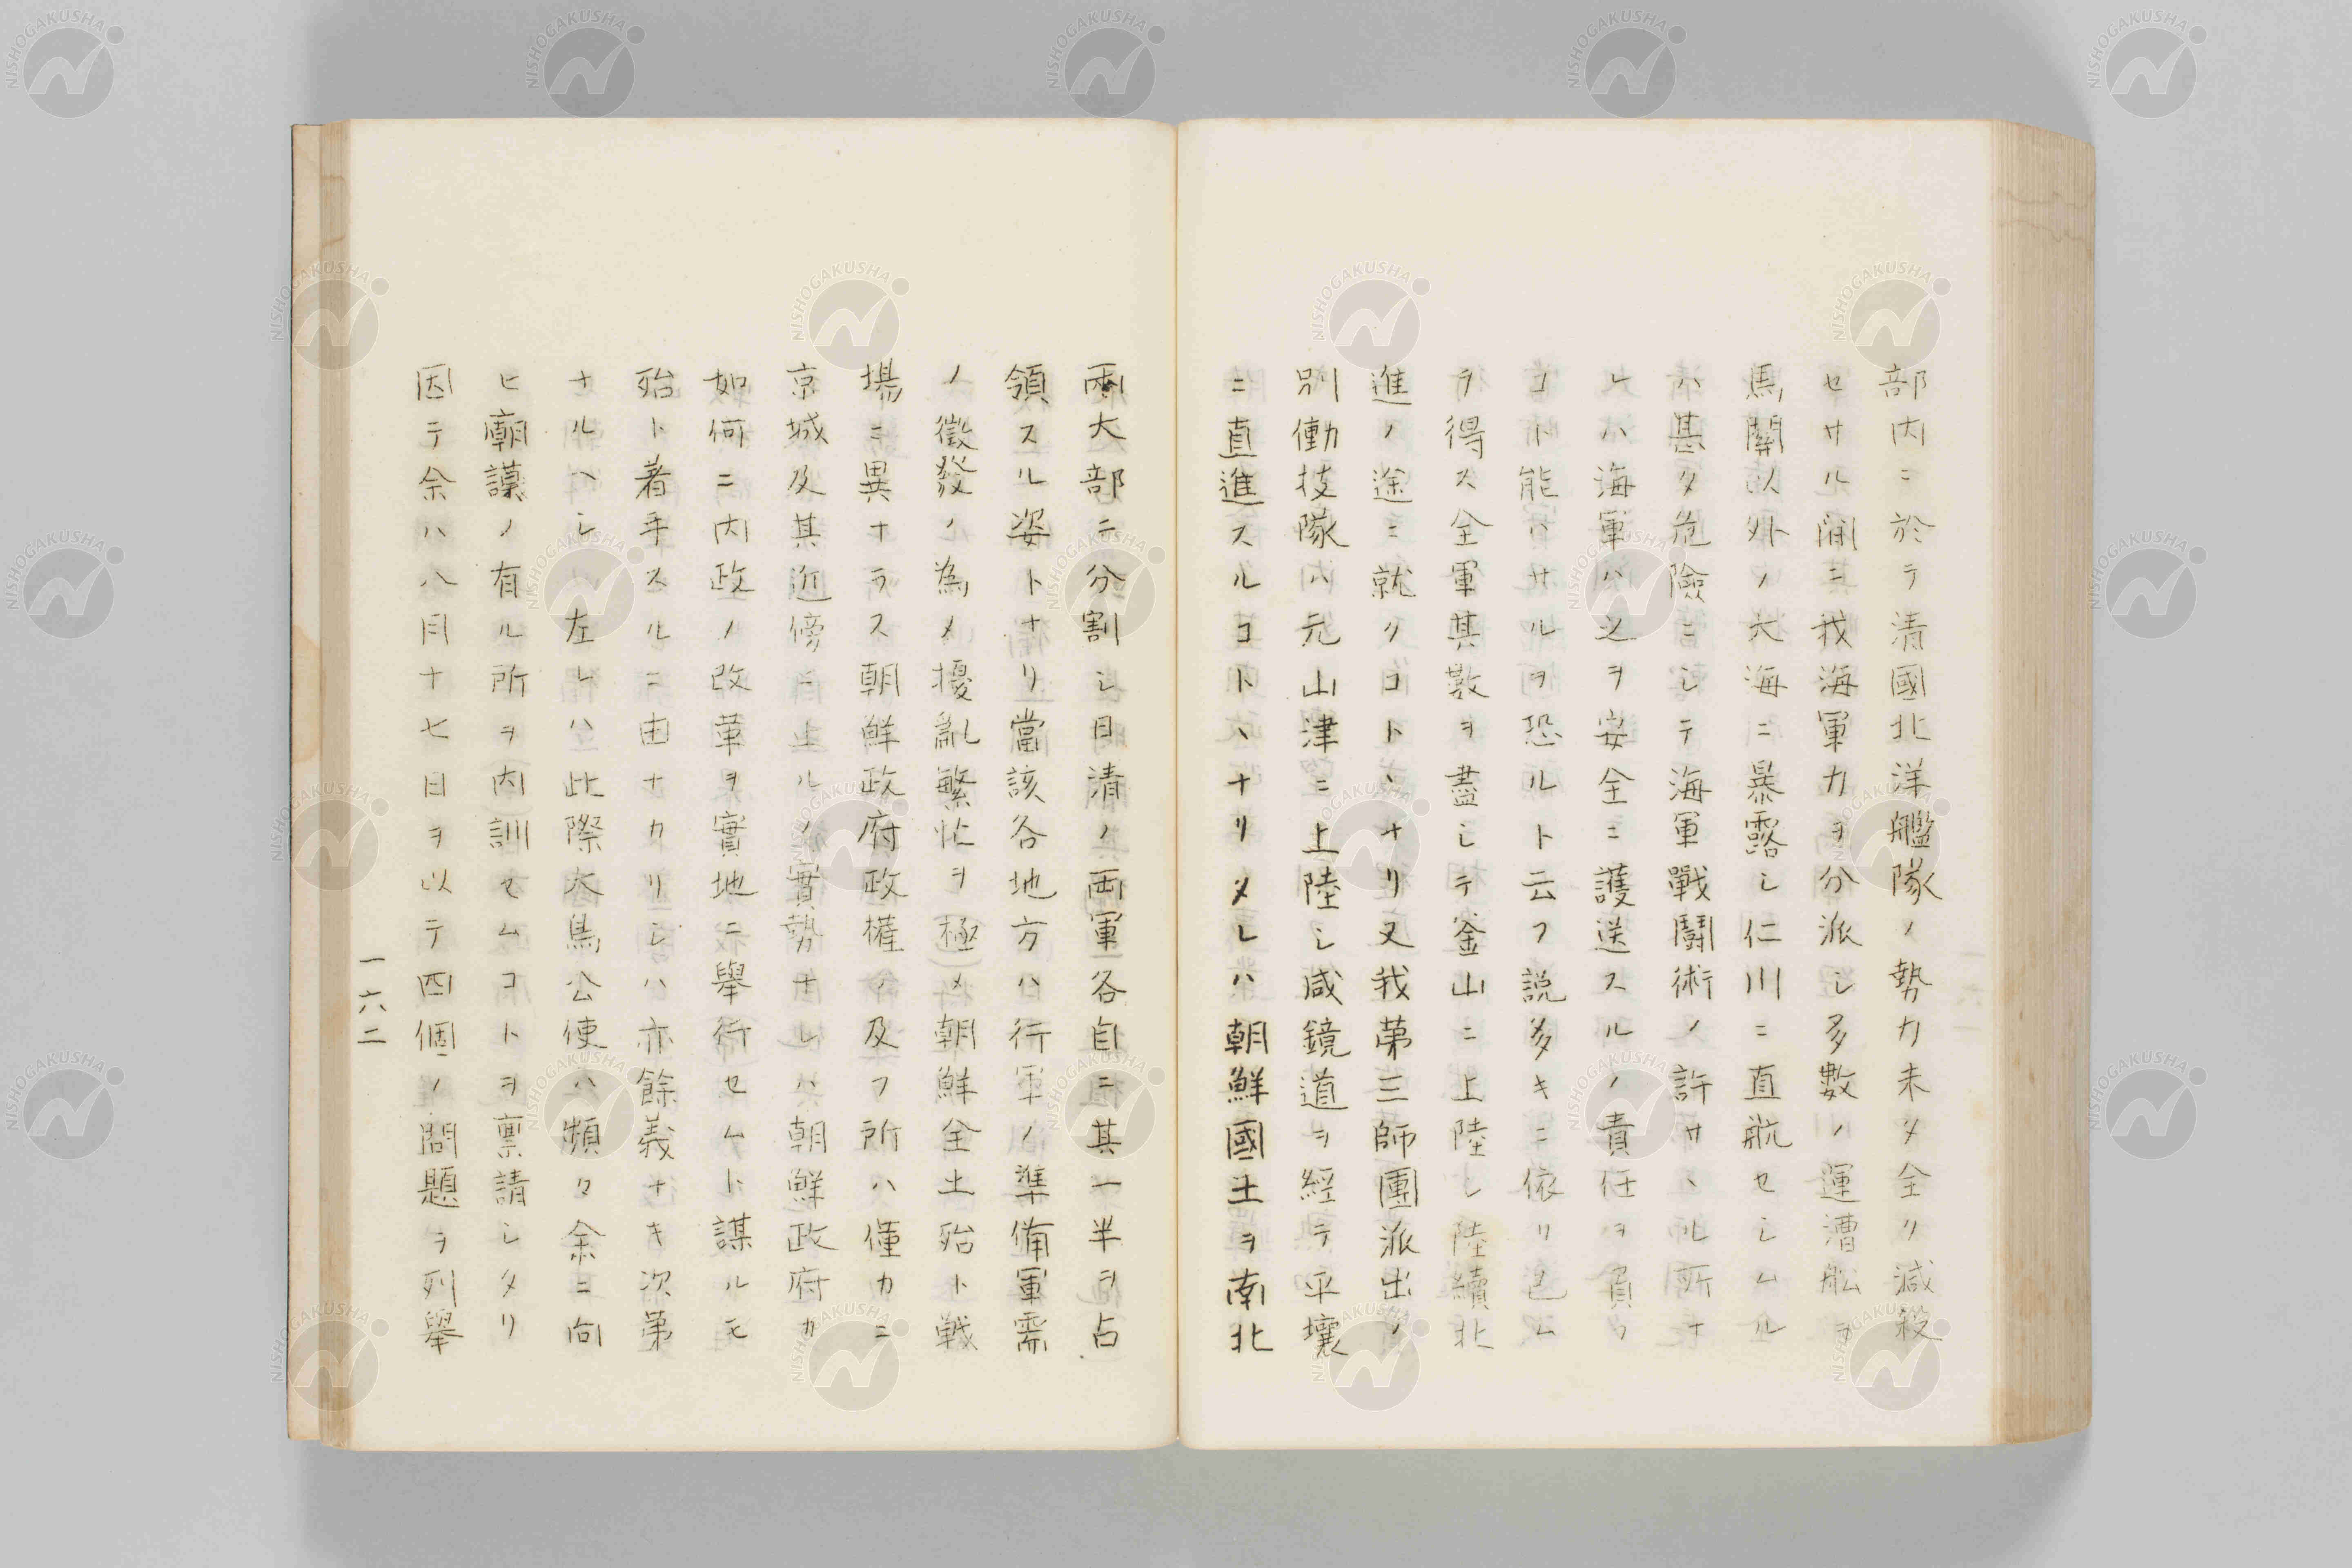 部内ニ於テ清國北洋艦隊ノ勢力未タ全ク減殺
セサル間ニ我海軍力ヲ分派シ多數ノ運漕舩ヲ
馬關以外ノ大海ニ暴露シ仁川ニ直航セシムル
ハ甚タ危險ニシテ海軍戰鬪術ノ許サヽル所ナ
レハ海軍ハ之ヲ安全ニ護送スルノ責任ヲ負フ
コト能ハサルヲ恐ルト云フ説多キニ依リ已ム
ヲ得ス全軍其數ヲ盡シテ釜山ニ上陸シ陸續北
進ノ途ニ就クコトヽナリ又我第三師團派出ノ
別働技隊ハ元山津ニ上陸シ咸鏡道ヲ經テ平壤
ニ直進スルコトヽナリタレハ朝鮮國土ヲ南北
兩大部ニ分割シ日清ノ兩軍各自ニ其一半ヲ占
領スル姿トナリ當該各地方ハ行軍ノ準備軍需
ノ徴發ノ為メ擾亂繁忙ヲ極メ朝鮮全土殆ト戦
場ニ異ナラス朝鮮政府政權ノ及フ所ハ僅カニ
京城及其近傍ニ止ルノ實勢ナレハ朝鮮政府カ
如何ニ内政ノ改革ヲ實地ニ舉行セムト謀ルモ
殆ト着手スルニ由ナカリシハ亦餘義ナキ次第
ナルヘシ左レハ此際大鳥公使ハ頻々余ニ向
ヒ廟謨ノ有ル所ヲ内訓セムコトヲ禀請シタリ
因テ余ハ八月十七日ヲ以テ四個ノ問題ヲ列舉
一六二
NISHOGAKUSHA